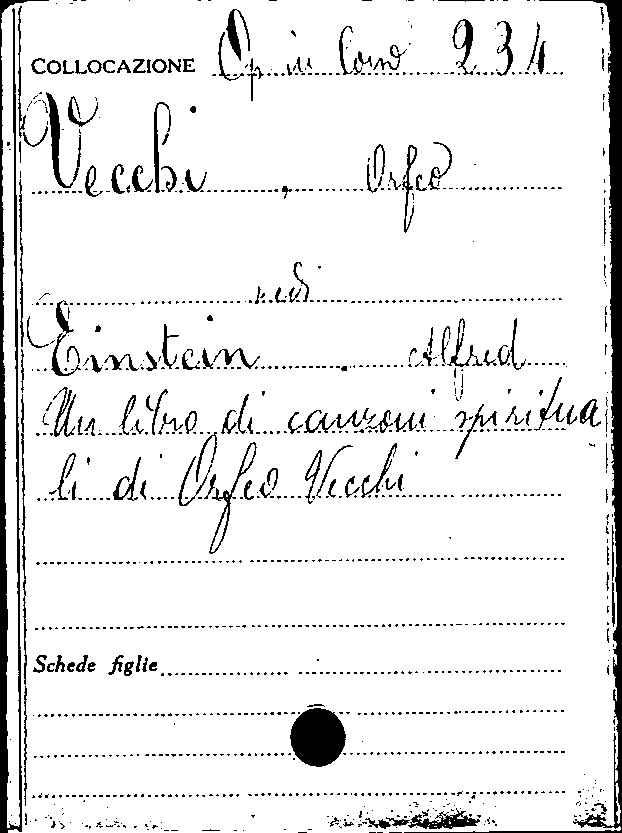 COLLOCAZIONE Op in Cons 234
Vecchi, Orfeo
vedi
Einstein. Alfred
Un libro di canzoni spiritua
li di Orfeo Vecchi
Schede figlie